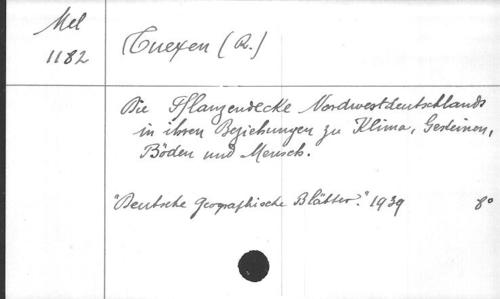 Mel
1182
Tuexen (R.)
Die Pflanzendecke Nordwestdeutschlands
in ihren Beziehungen zu Klima, Gesteinen,
Böden und Mensch.
"Deutsche Geographische Blätter." 1939 8°